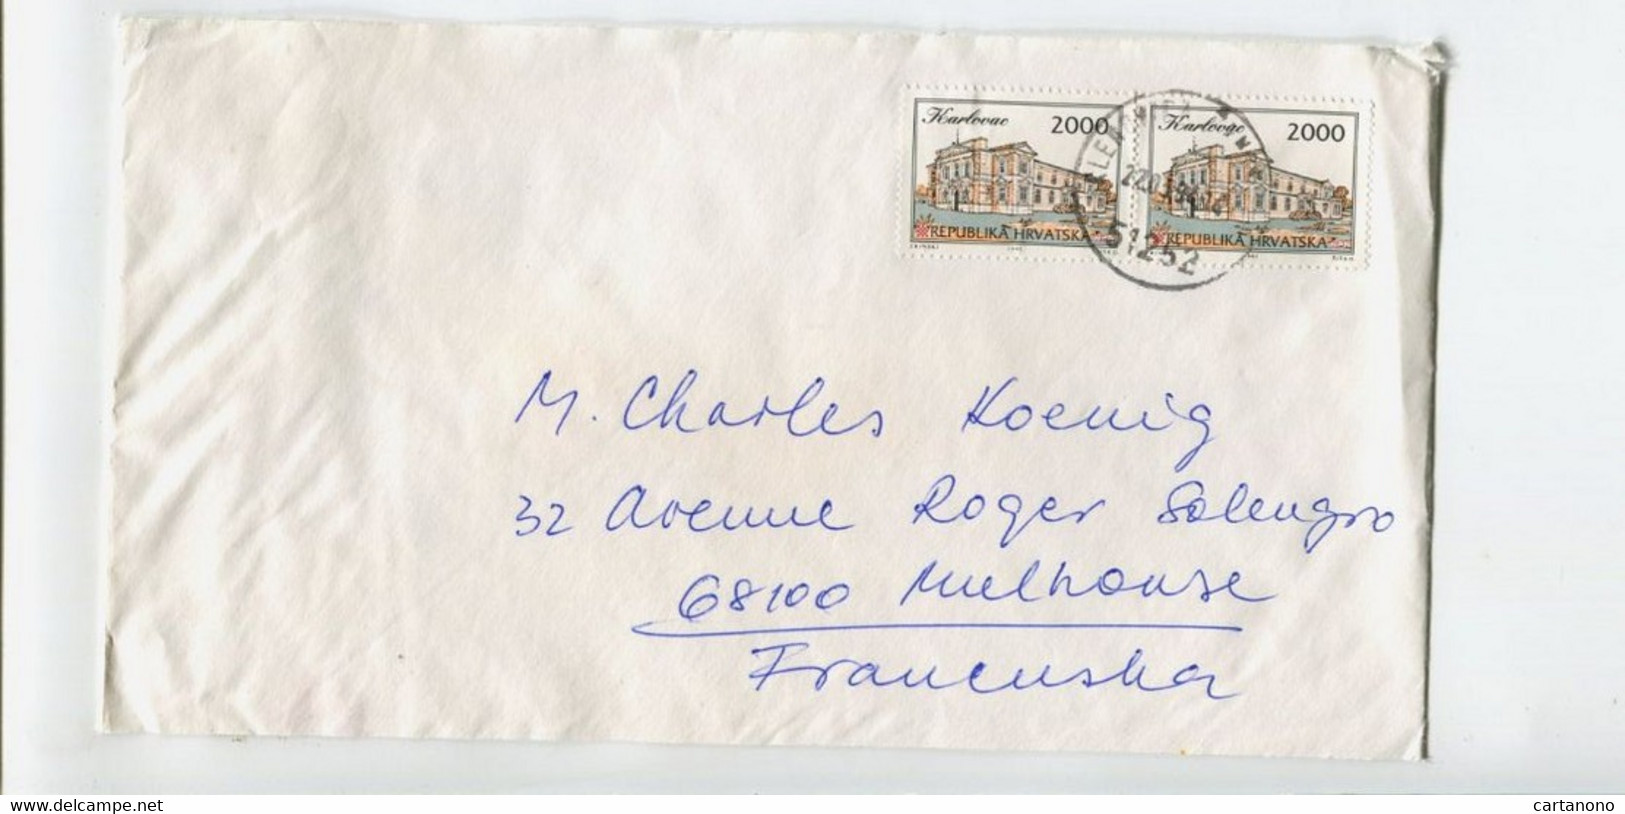 Karlovac 2000
REPUBLIKA HRVATSKA
Karlovac 2000
REPUBLIKA HRVATSKA
51252
M. Charles Koenig
32 Avenue Roger Salengro
68100 Mulhouse
Francuska
www.delcampe.net
cartanono